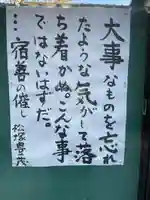 大事なものを忘れ
たような気がして落
ち着かぬ。こんな事
ではないはずだ。
…宿善の催し
松塚豊茂